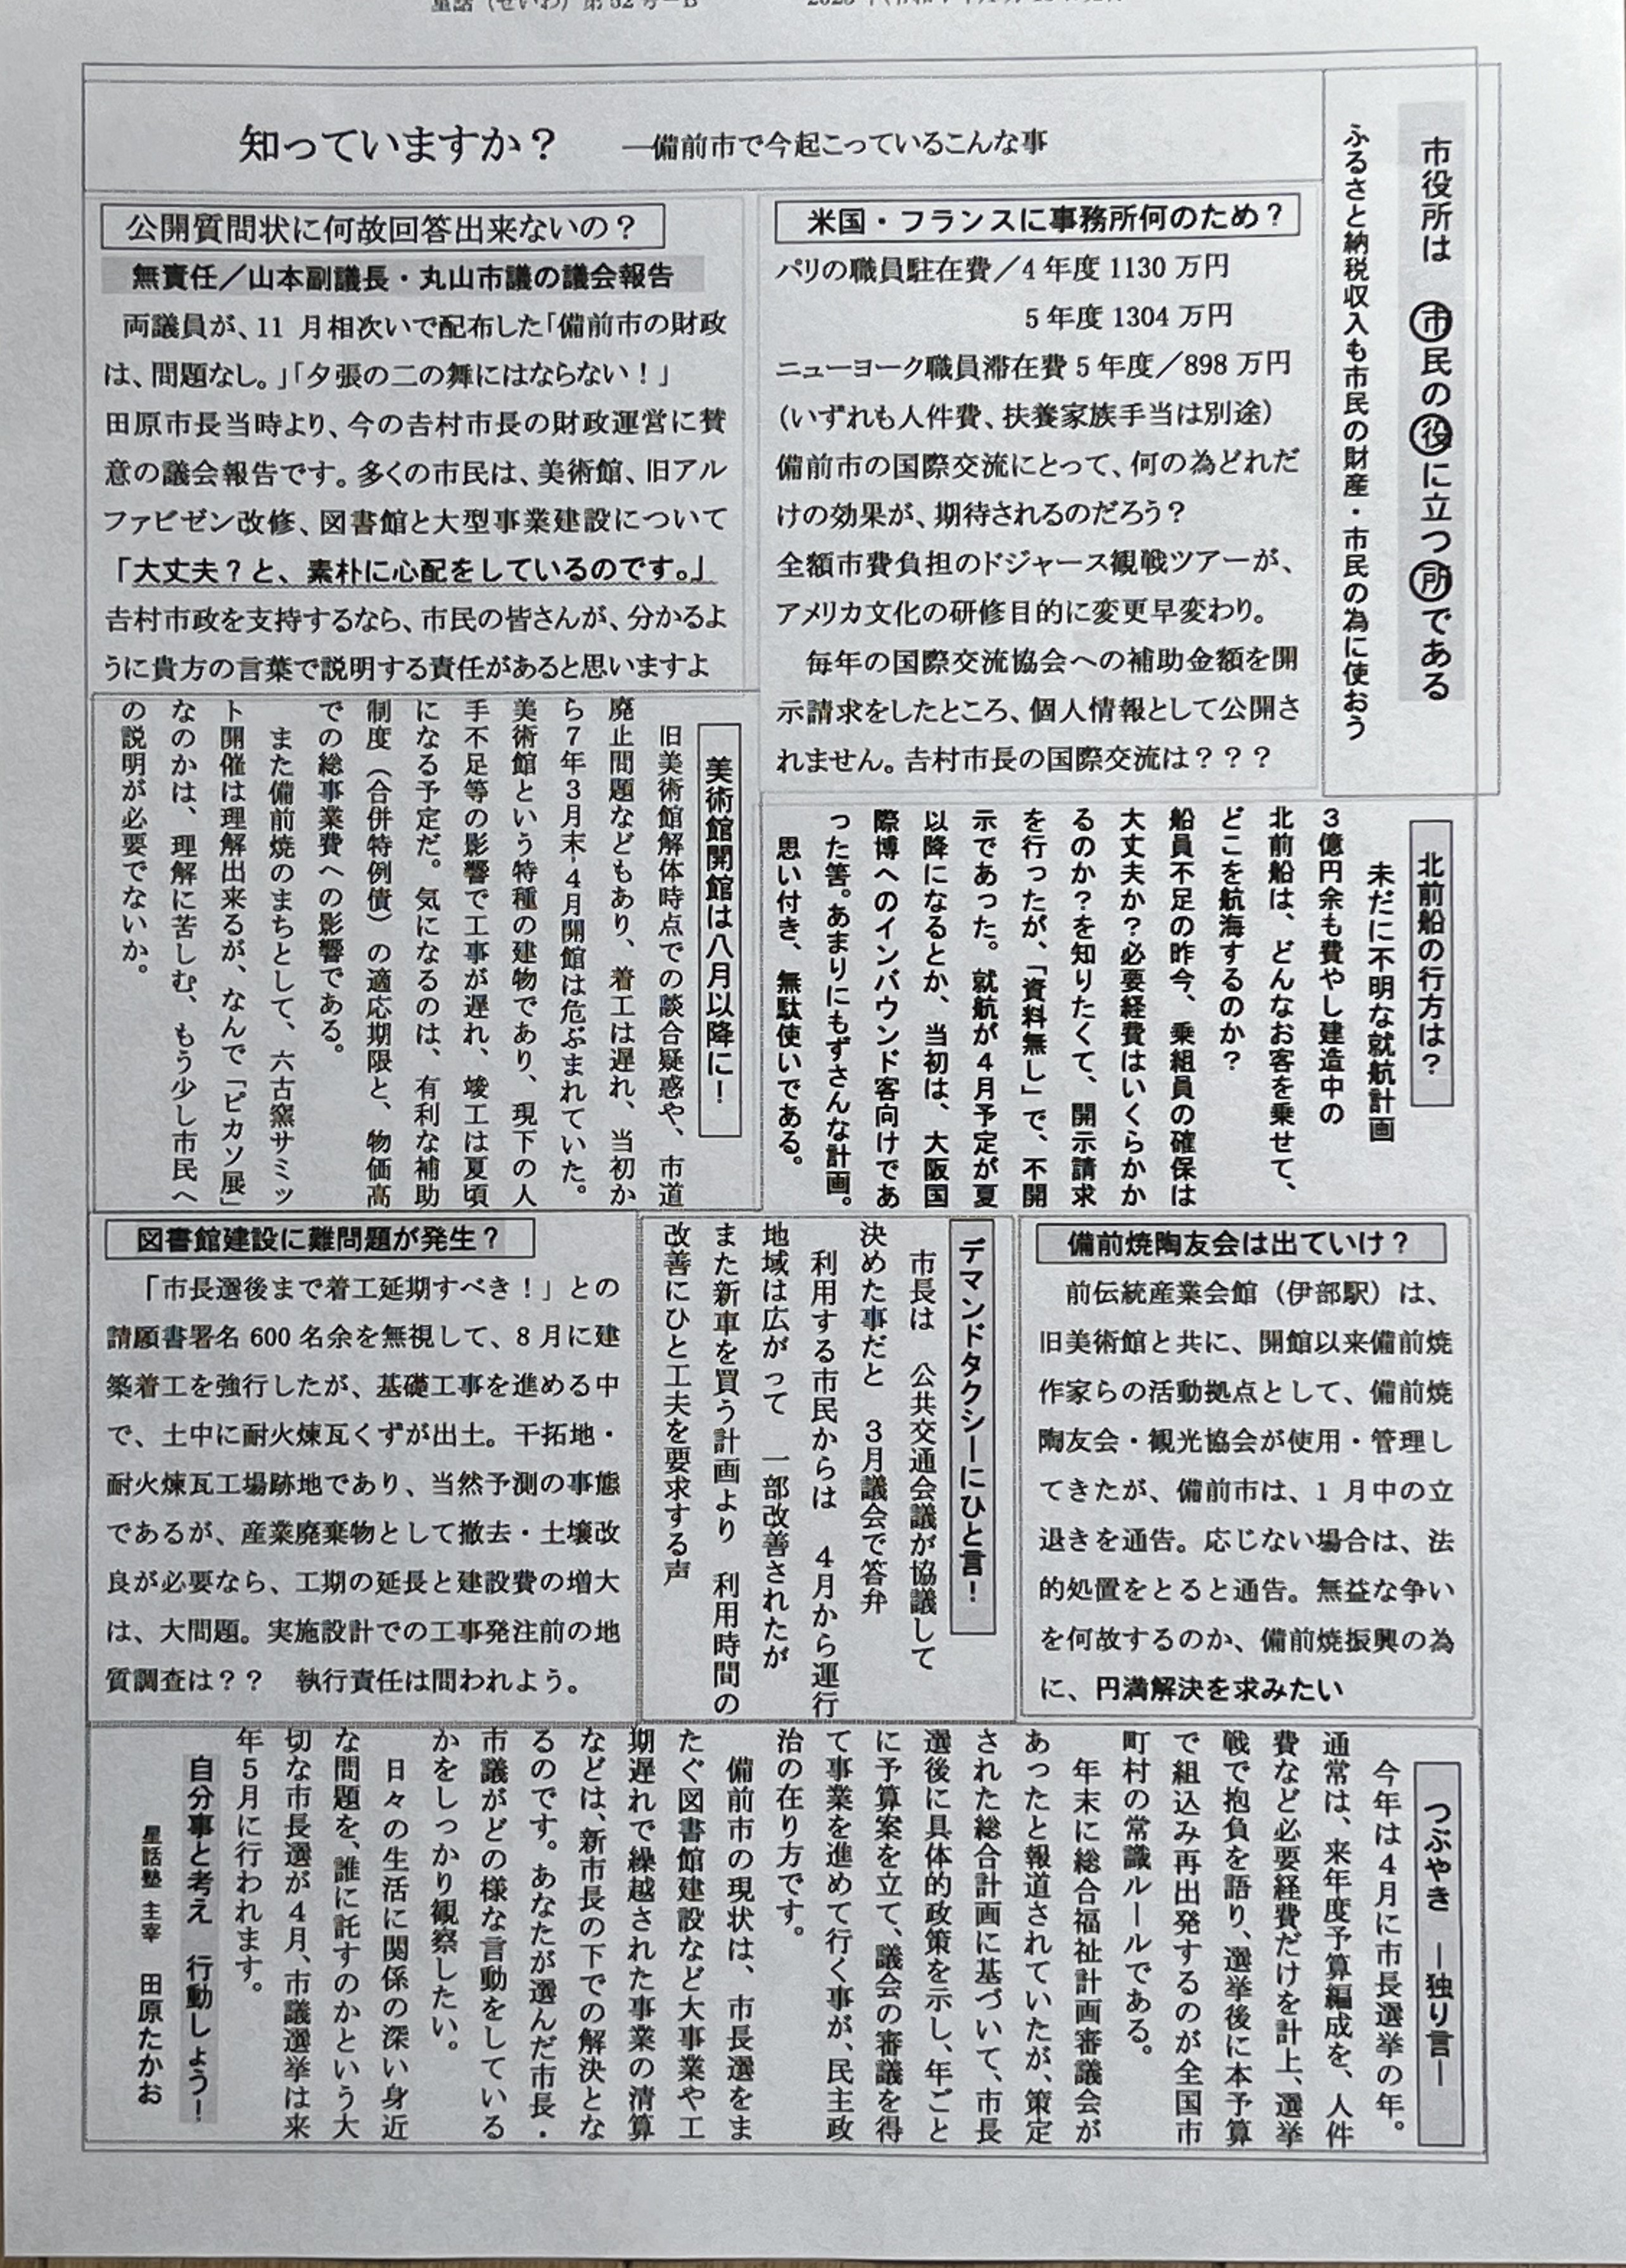 市役所は　市民の役に立つ所である
ふるさと納税収入も市民の財産・市民の為に使おう
知っていますか？　―備前市で今起こっているこんな事
米国・フランスに事務所何のため？
パリの職員駐在費／4年度1130万円
5年度1304万円
ニューヨーク職員滞在費5年度／898万円
（いずれも人件費、扶養家族手当は別途）
備前市の国際交流にとって、何の為どれだ
けの効果が、期待されるのだろう？
全額市費負担のドジャース観戦ツアーが、
アメリカ文化の研修目的に変更早変わり。
毎年の国際交流協会への補助金額を開
示請求をしたところ、個人情報として公開さ
れません。吉村市長の国際交流は？？？
公開質問状に何故回答出来ないの？
無責任／山本副議長・丸山市議の議会報告
両議員が、11月相次いで配布した「備前市の財政
は、問題なし。」「夕張の二の舞にはならない！」
田原市長当時より、今の吉村市長の財政運営に賛
意の議会報告です。多くの市民は、美術館、旧アル
ファビゼン改修、図書館と大型事業建設について
「大丈夫？と、素朴に心配をしているのです。」
吉村市政を支持するなら、市民の皆さんが、分かるよ
うに貴方の言葉で説明する責任があると思いますよ
北前船の行方は？
未だに不明な就航計画
3億円余も費やし建造中の
北前船は、どんなお客を乗せて、
どこを航海するのか？
船員不足の昨今、乗組員の確保は
大丈夫か？必要経費はいくらかか
るのか？を知りたくて、開示請求
を行ったが、「資料無し」で、不開
示であった。就航が4月予定が夏
以降になるとか、当初は、大阪国
際博へのインバウンド客向けであ
った筈。あまりにもずさんな計画。
思い付き、無駄使いである。
美術館開館は八月以降に！
旧美術館解体時点での談合疑惑や、市道
廃止問題などもあり、着工は遅れ、当初か
ら7年3月末-4月開館は危ぶまれていた。
美術館という特種の建物であり、現下の人
手不足等の影響で工事が遅れ、竣工は夏頃
になる予定だ。気になるのは、有利な補助
制度（合併特例債）の適応期限と、物価高
での総事業費への影響である。
また備前焼のまちとして、六古窯サミッ
ト開催は理解出来るが、なんで「ピカソ展」
なのかは、理解に苦しむ、もう少し市民へ
の説明が必要でないか。
備前焼陶友会は出ていけ？
前伝統産業会館（伊部駅）は、
旧美術館と共に、開館以来備前焼
作家らの活動拠点として、備前焼
陶友会・観光協会が使用・管理し
てきたが、備前市は、1月中の立
退きを通告。応じない場合は、法
的処置をとると通告。無益な争い
を何故するのか、備前焼振興の為
に、円満解決を求みたい
デマンドタクシーにひと言！
市長は　公共交通会議が協議して
決めた事だと　3月議会で答弁
利用する市民からは　4月から運行
地域は広がって　一部改善されたが
また新車を買う計画より　利用時間の
改善にひと工夫を要求する声
図書館建設に難問題が発生？
「市長選後まで着工延期すべき！」との
請願書署名600名余を無視して、8月に建
築着工を強行したが、基礎工事を進める中
で、土中に耐火煉瓦くずが出土。干拓地・
耐火煉瓦工場跡地であり、当然予測の事態
であるが、産業廃棄物として撤去・土壌改
良が必要なら、工期の延長と建設費の増大
は、大問題。実施設計での工事発注前の地
質調査は？？　執行責任は問われよう。
つぶやき　―独り言―
今年は4月に市長選挙の年。
通常は、来年度予算編成を、人件
費など必要経費だけを計上、選挙
戦で抱負を語り、選挙後に本予算
で組込み再出発するのが全国市
町村の常識ルールである。
年末に総合福祉計画審議会が
あったと報道されていたが、策定
された総合計画に基づいて、市長
選後に具体的政策を示し、年ごと
に予算案を立て、議会の審議を得
て事業を進めて行く事が、民主政
治の在り方です。
備前市の現状は、市長選をま
たぐ図書館建設など大事業や工
期遅れで繰越された事業の清算
などは、新市長の下での解決とな
るのです。あなたが選んだ市長・
市議がどの様な言動をしている
かをしっかり観察したい。
日々の生活に関係の深い身近
な問題を、誰に託すのかという大
切な市長選が4月、市議選挙は来
年5月に行われます。
自分事と考え　行動しよう！
星話塾　主宰　田原たかお